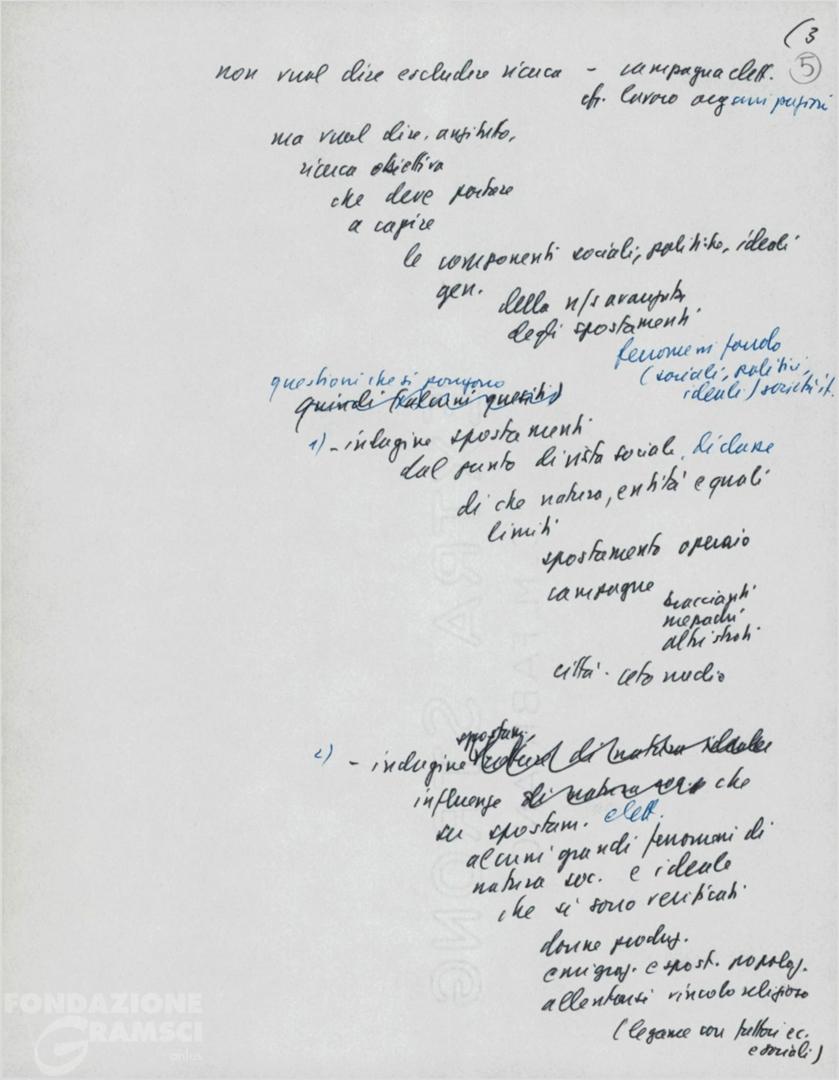 (3
5
non vuol dire escludere ricerca - campagna elett.
cfr. lavoro organi
ma vuol dire, anzitutto,
ricerca obiettiva
che deve portare
a capire
le componenti sociali, politiche, ideali
gen.
della n/s avanzata
degli spostamenti
fenomeni fondo
(sociali, politici,
ideali) società it.
questioni che si pongono
quindi (alcuni quesiti)
1) - indagine spostamenti
dal punto di vista sociale, di classe
di che natura, entità e quali
limiti
spostamento operaio
campagne
braccianti
mezzadri
altri strati
città - ceto medio
spostam.
2) - indagine di natura ideale
influenze di natura che
su spostam. elett.
alcuni grandi fenomeni di
natura soc. e ideale
che si sono verificati
donne produz.
emigraz. e spost. popolaz.
allentarsi vincolo religioso
(legame con fattori ec.
e sociali)
FONDAZIONE
GRAMSCI
onlus